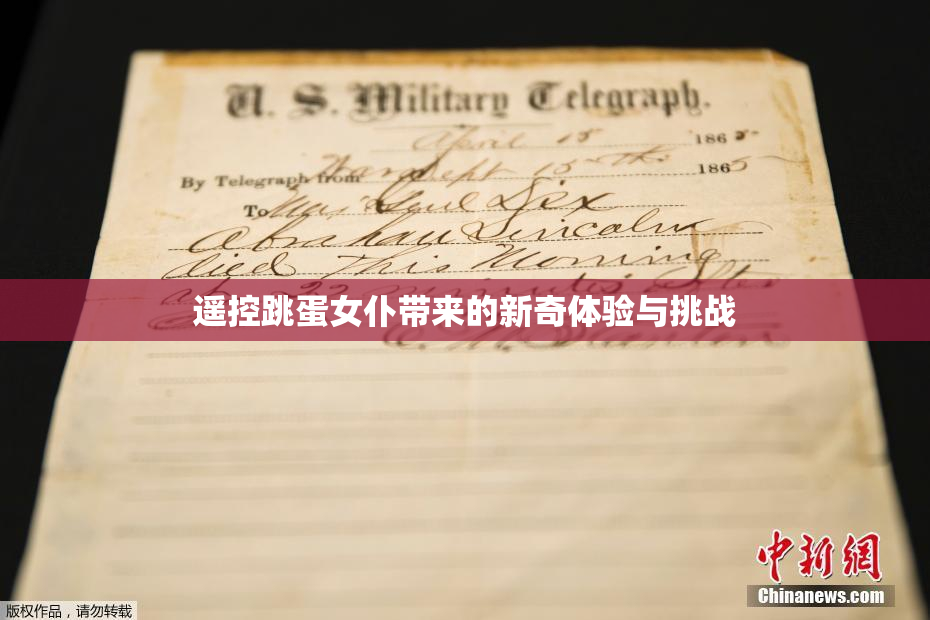 U. S. Military Telegraph.
April 15 1865
By Telegraph from War Dept 15th 1865
To Maj Genl Dix
Abraham Lincoln
died This Morning
at 22 minutes after
遥控跳蛋女仆带来的新奇体验与挑战
中新网
Chinanews.com
版权作品，请勿转载